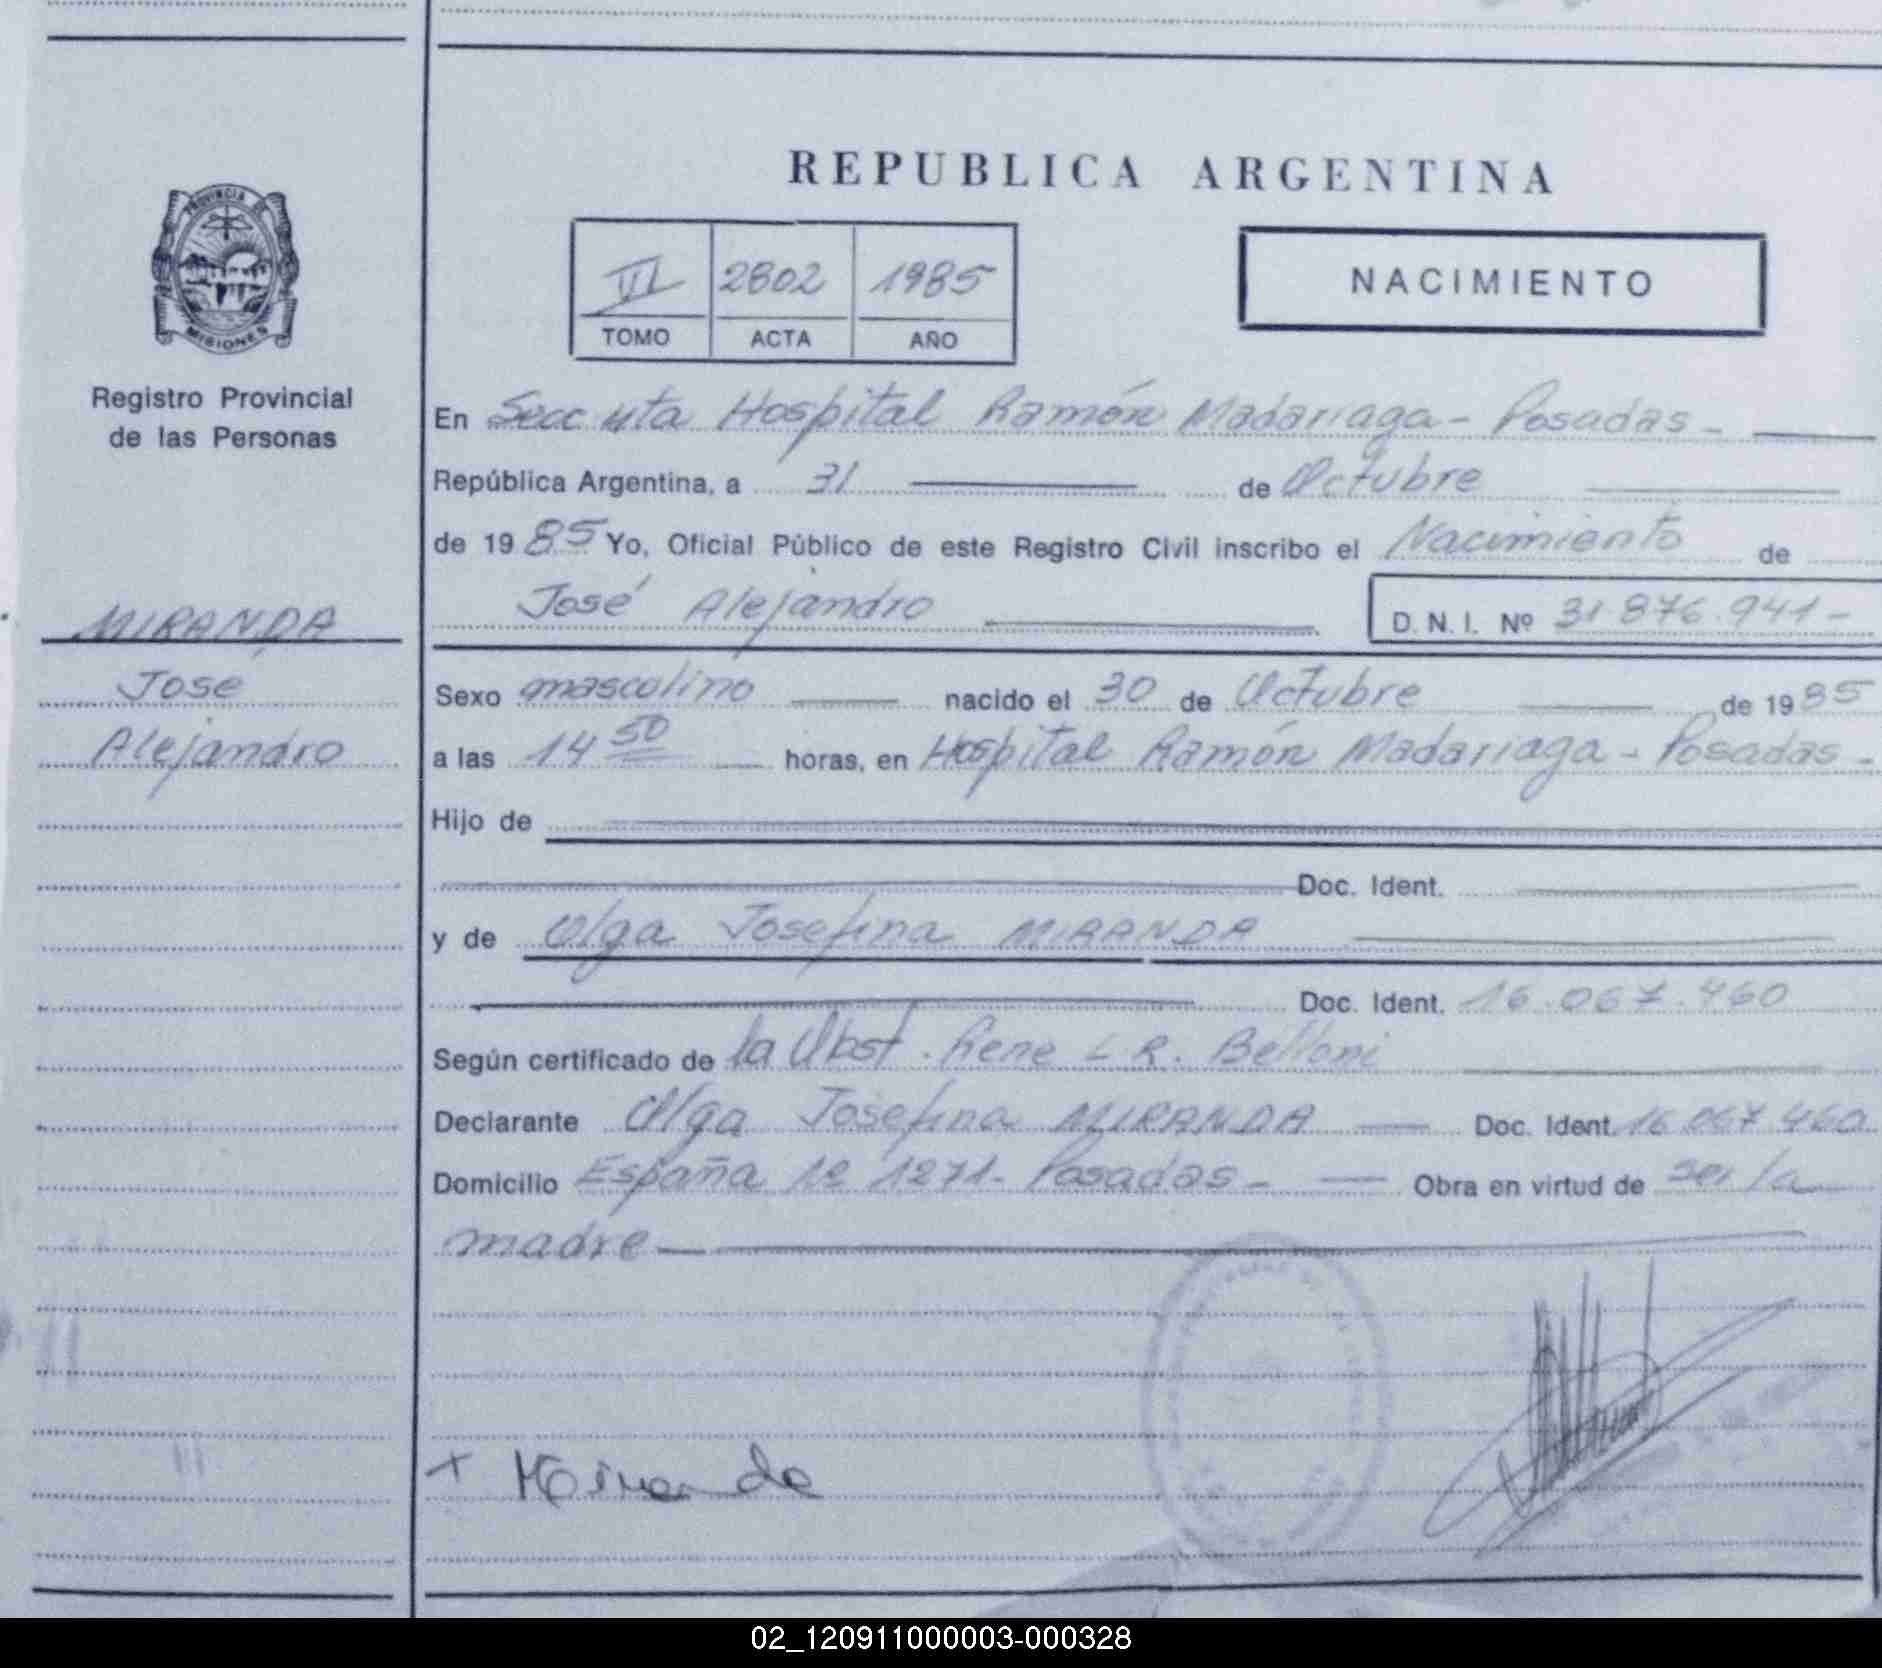 REPUBLICA ARGENTINA
PROVINCIA DE
MISIONES
Registro Provincial
de las Personas
VI 2802 1985
TOMO ACTA AÑO
NACIMIENTO
En Secc nta Hospital Ramón Madariaga - Posadas -
República Argentina, a 31 de Octubre
de 1985 Yo, Oficial Público de este Registro Civil inscribo el Nacimiento de
José Alejandro D.N.I. Nº 31.876.941-
MIRANDA
José
Alejandro
Sexo masculino nacido el 30 de Octubre de 1985
a las 14 50 horas, en Hospital Ramón Madariaga - Posadas -
Hijo de
Doc. Ident.
y de Olga Josefina MIRANDA
Doc. Ident. 16.067.460
Según certificado de la Obst. Rene L R. Belloni
Declarante Olga Josefina MIRANDA Doc. Ident. 16 067 460
Domicilio España Nº 1271- Posadas - Obra en virtud de ser la
madre
+ Miranda
02_120911000003-000328